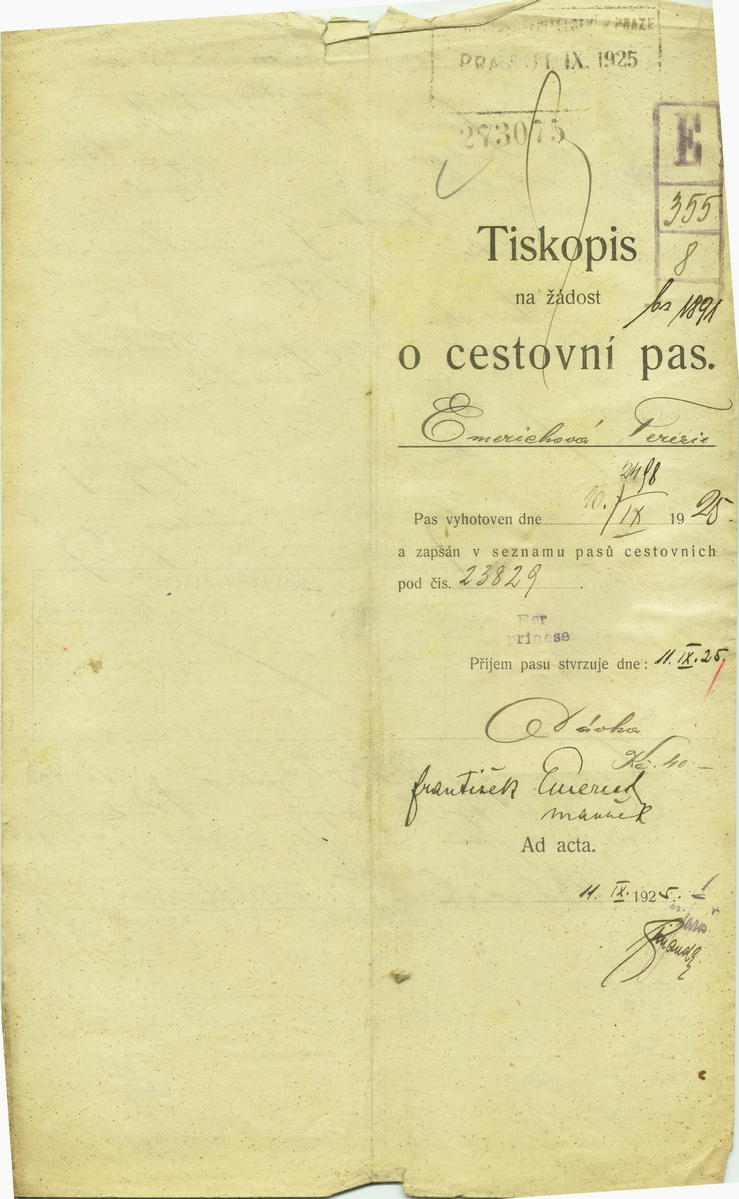 PRAZE
IX. 1925
273075
E
355
8
Tiskopis
na žádost
1891
o cestovní pas.
Emerichová Terezie
Pas vyhotoven dne 10./IX 1925.
a zapsán v seznamu pasů cestovních
pod čís. 23829.
Příjem pasu stvrzuje dne: 11.IX.25.
Dávka
Kč. 40.—
František Emerich
manžel
Ad acta.
11. IX. 1925.